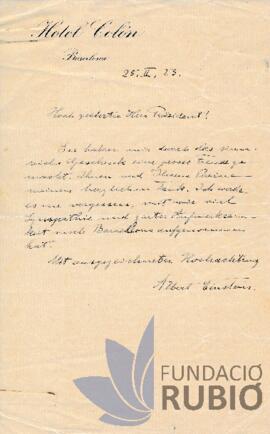 Hotel Colón
Barcelona
25. II. 23.
Hoch geehrter Herr Präsident!
Sie haben mir durch das sinn-
reiche Geschenk eine grosse Freude ge-
macht. Ihnen und Ihrem
meinen herzlichen Dank. Ich werde
es nie vergessen, mit wie viel
Sympathie und zarter Aufmerksam-
keit mich Barcelona aufgenommen
hat.
Mit ausgezeichneter Hochachtung
Albert Einstein.
FUNDACIÓ
RUBIÓ